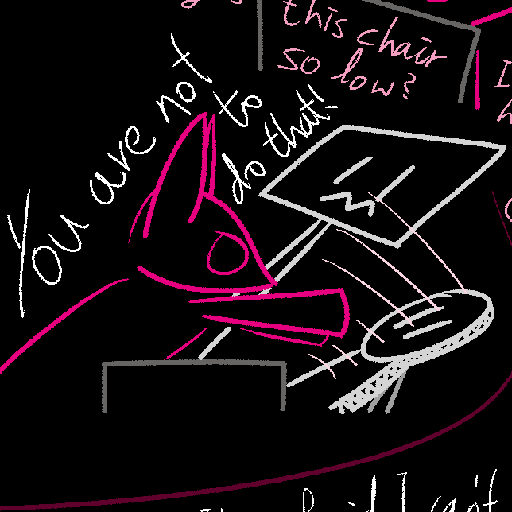 this chair
so low?
You are not
to
do that!
I can't